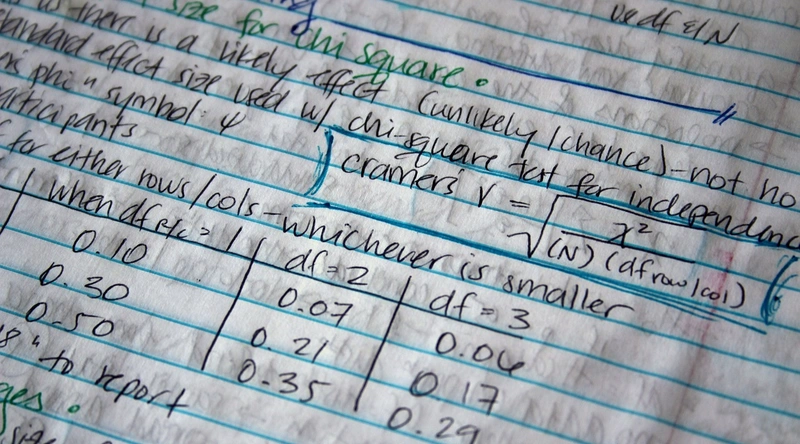 use df & N
size for chi square.
there is a likely effect (unlikely/chance) - not no
standard effect size used w/ chi-square test for independence
phi" symbol: φ
participants
cramers' V = √ χ² / (N)(df row/col)
for either rows/cols - whichever is smaller
when df r/c = 1 | df = 2 | df = 3
0.10 | 0.07 | 0.06
0.30 | 0.21 | 0.17
0.50 | 0.35 | 0.29
" to report